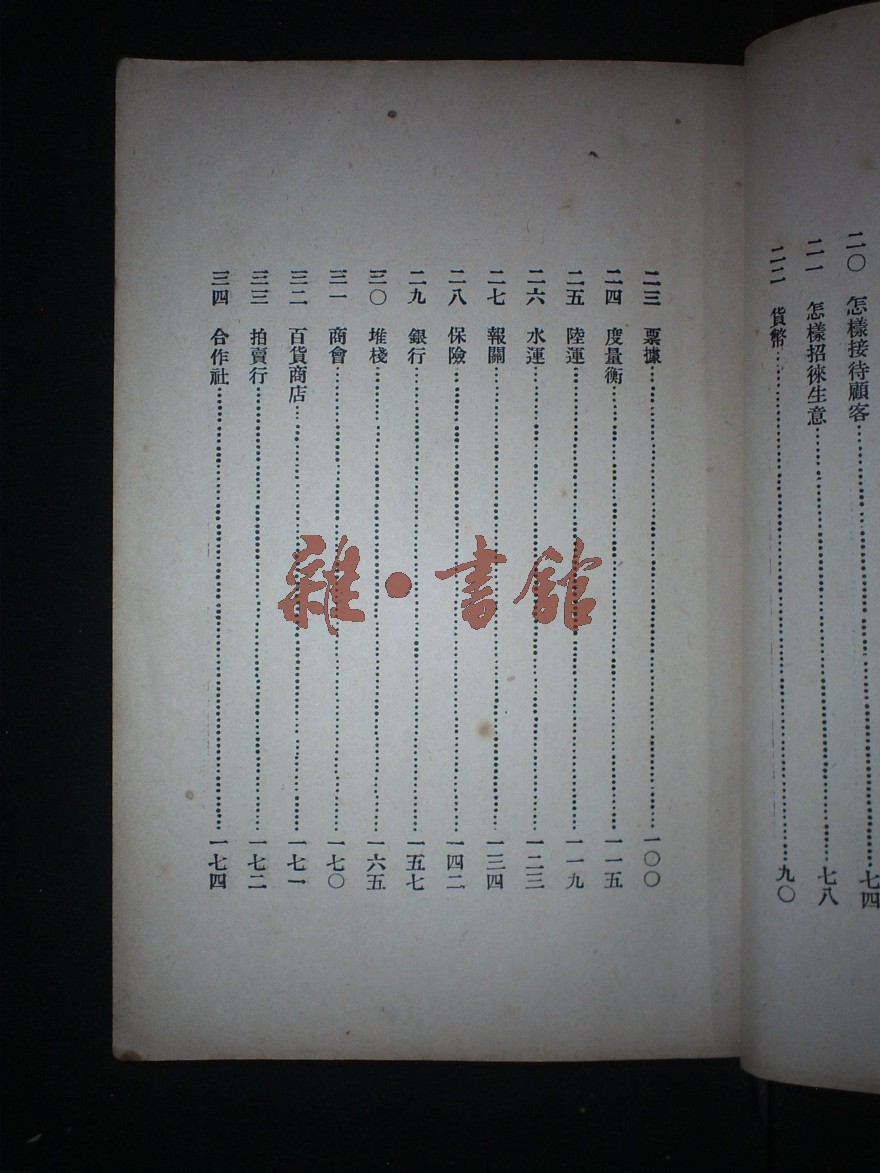 二〇 怎樣接待顧客……七四
二一 怎樣招徠生意……七八
二二 貨幣……九〇
二三 票據……一〇〇
二四 度量衡……一一五
二五 陸運……一一九
二六 水運……一二三
二七 報關……一三四
二八 保險……一四二
二九 銀行……一五七
三〇 堆棧……一六五
三一 商會……一七〇
三二 百貨商店……一七一
三三 拍賣行……一七二
三四 合作社……一七四
雜·書館